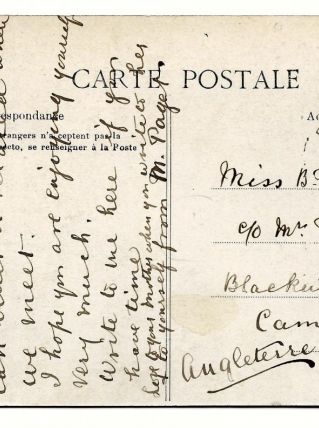 CARTE POSTALE
respondance
trangers n'a ceptent pas la
ecto, se renseigner à la Poste
we meet.
I hope you are enjoying yourself
very much.
Write to me here if you
have time
to your mother when you write to her
to yourself from M. Paget
Miss B
c/o Mr
Blackw
Cam
Angleterre